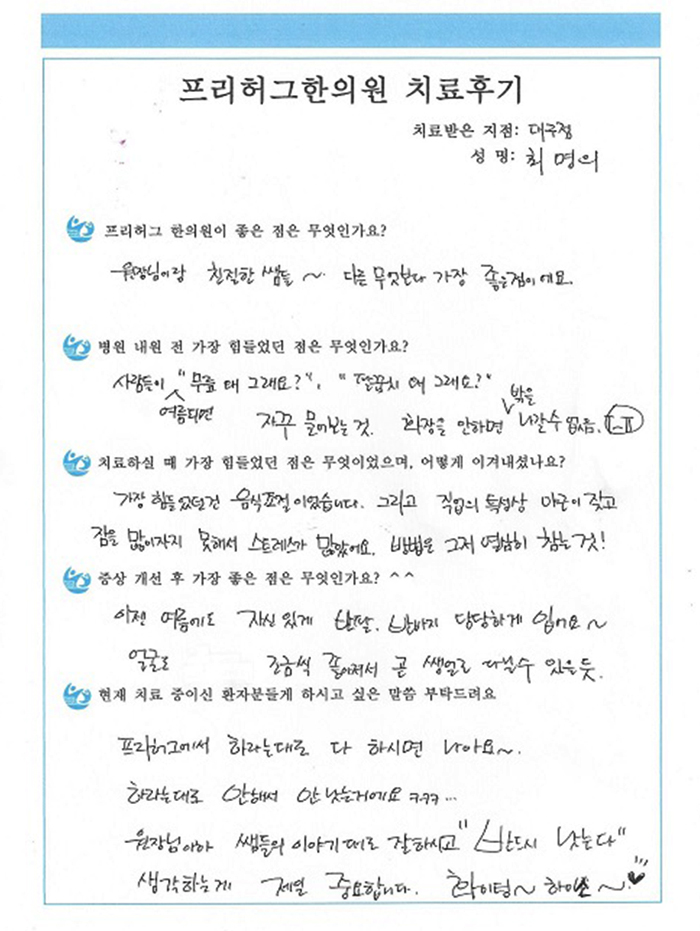 프리허그한의원 치료후기
치료받은 지점: 대구점
성 명: 최명의
프리허그 한의원이 좋은 점은 무엇인가요?
원장님이랑 친절한 쌤들~ 다른 무엇보다 가장 좋은점이에요.
병원 내원 전 가장 힘들었던 점은 무엇인가요?
사람들이 여름되면 "무릎 왜 그래요?", "팔꿈치 왜 그래요?"
자꾸 물어보는 것. 화장을 안하면 밖을 나갈수 없음. ㅠㅠ
치료하실 때 가장 힘들었던 점은 무엇이었으며, 어떻게 이겨내셨나요?
가장 힘들었던건 음식조절이었습니다. 그리고 직업의 특성상 야근이 잦고
잠을 많이자지 못해서 스트레스가 많았어요. 방법은 그저 열심히 참는 것!
증상 개선 후 가장 좋은 점은 무엇인가요? ^^
이젠 여름에도 자신있게 반팔. 반바지 당당하게 입어요~
얼굴도 조금씩 좋아져서 곧 쌩얼로 다닐수 있을듯.
현재 치료 중이신 환자분들게 하시고 싶은 말씀 부탁드려요
프리허그에서 하라는대로 다 하시면 나아요~.
하라는대로 안해서 안낫는거에요 ㅋㅋㅋ...
원장님아하 쌤들의 이야기대로 잘하시고 "반드시 낫는다"
생각하는게 제일 중요합니다. 화이팅~ 하이쏘~.♥